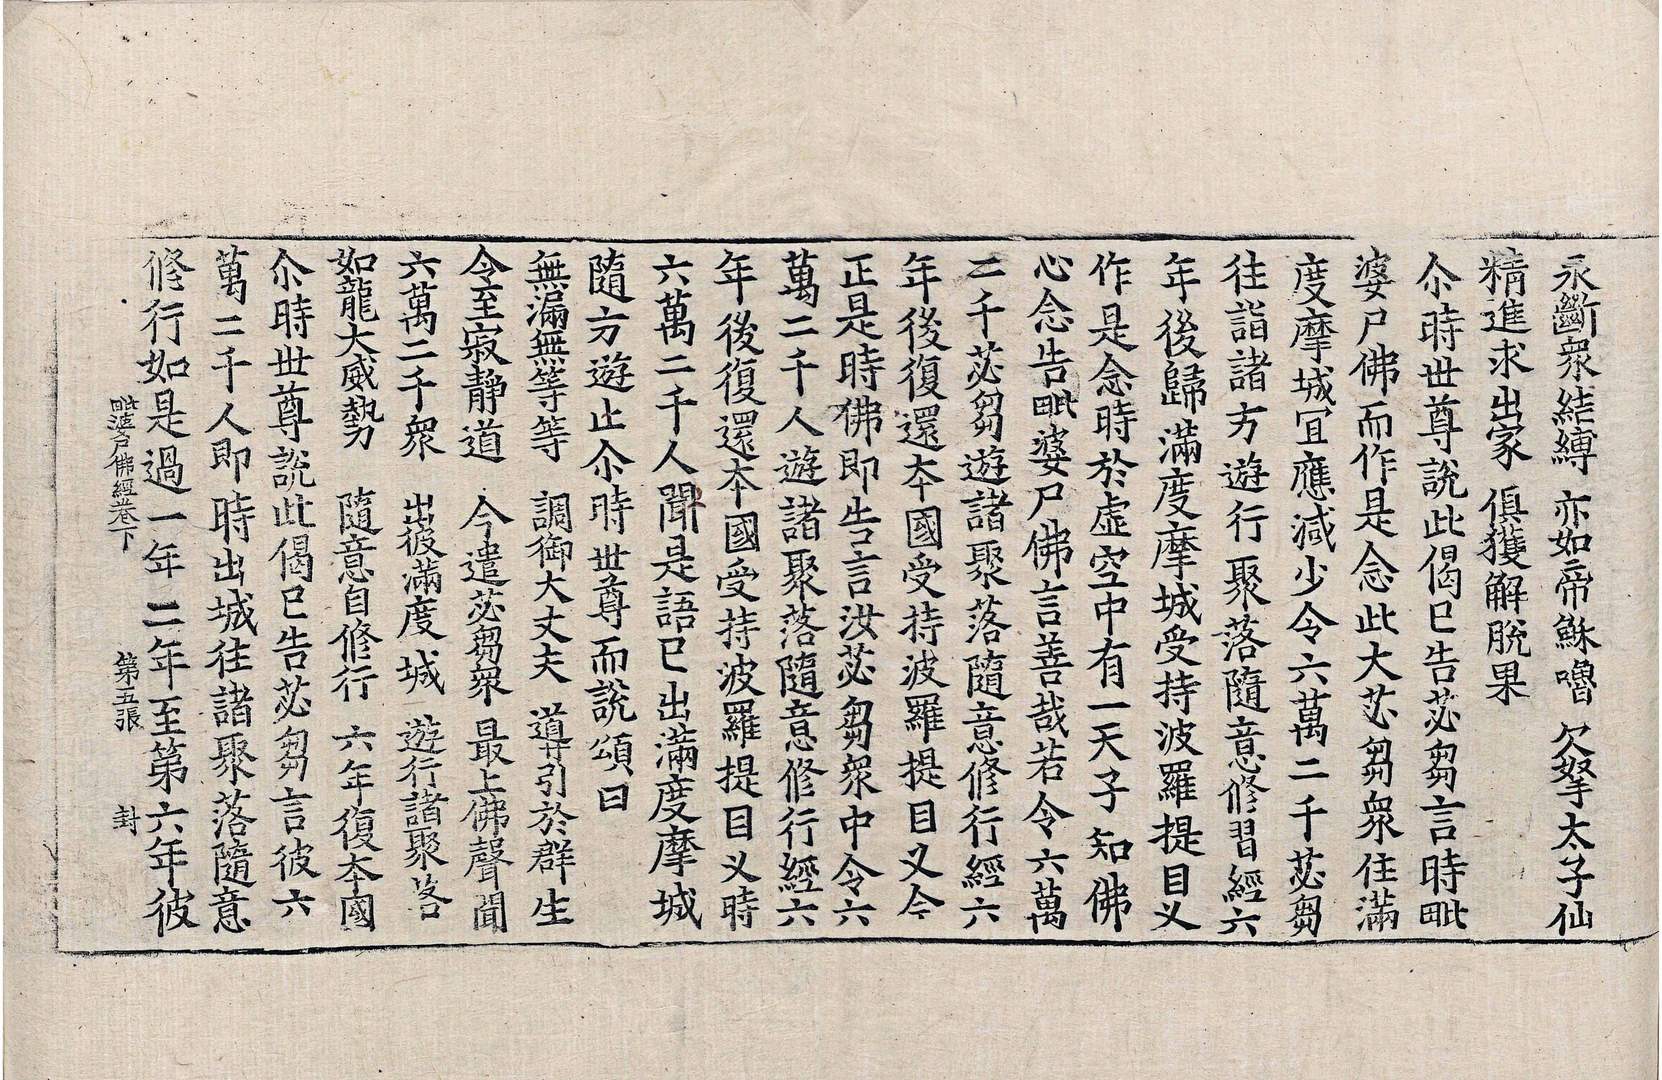 永斷衆結縛 亦如帝穌嚕 欠拏太子仙
精進求出家 俱獲解脫果
尒時世尊說此偈已告苾芻言時毗
婆尸佛而作是念此大苾芻衆住滿
度摩城宜應減少令六萬二千苾芻
往詣諸方遊行聚落隨意修習經六
年後歸滿度摩城受持波羅提目义
作是念時於虛空中有一天子知佛
心念告毗婆尸佛言善哉若令六萬
二千苾芻遊諸聚落隨意修行經六
年後復還夲國受持波羅提目义今
正是時佛即告言汝苾芻衆中令六
萬二千人遊諸聚落隨意修行經六
年後復還夲國受持波羅提目义時
六萬二千人聞是語已出滿度摩城
隨方遊止尒時世尊而說頌曰
無漏無等等 調御大丈夫 導引於群生
令至寂靜道 今遣苾芻衆 最上佛聲聞
六萬二千衆 出彼滿度城 遊行諸聚落
如龍大威勢 隨意自修行 六年復夲國
尒時世尊說此偈已告苾芻言彼六
萬二千人即時出城往諸聚落隨意
修行如是過一年二年至第六年彼
毗婆尸佛經卷下 第五張 封